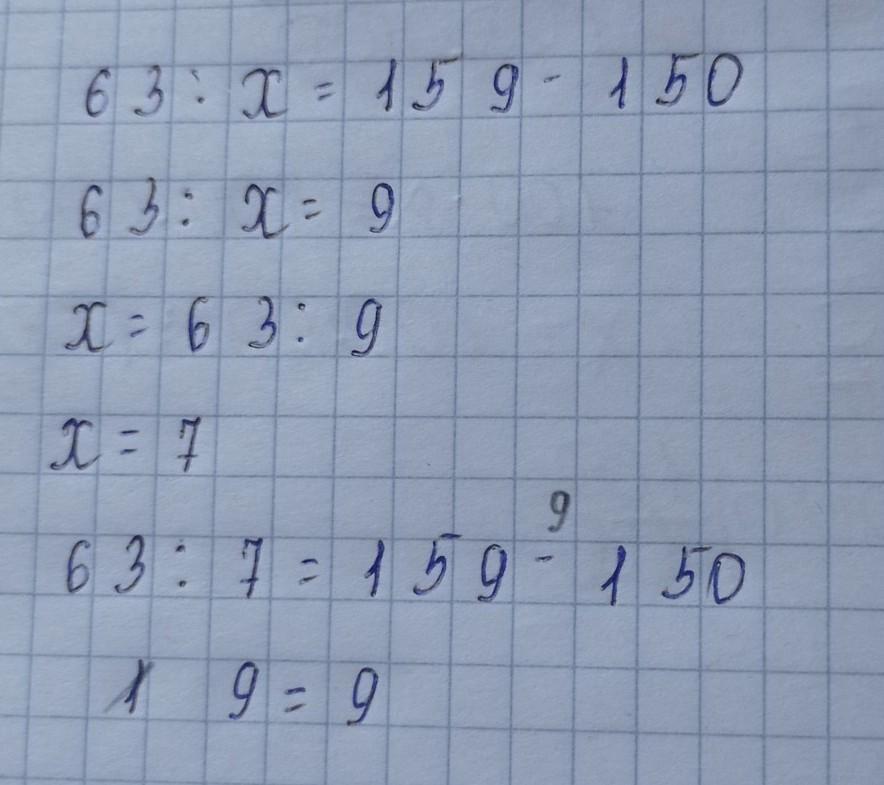 63 : x = 159 - 150
63 : x = 9
x = 63 : 9
x = 7
9
63 : 7 = 159 - 150
9 = 9